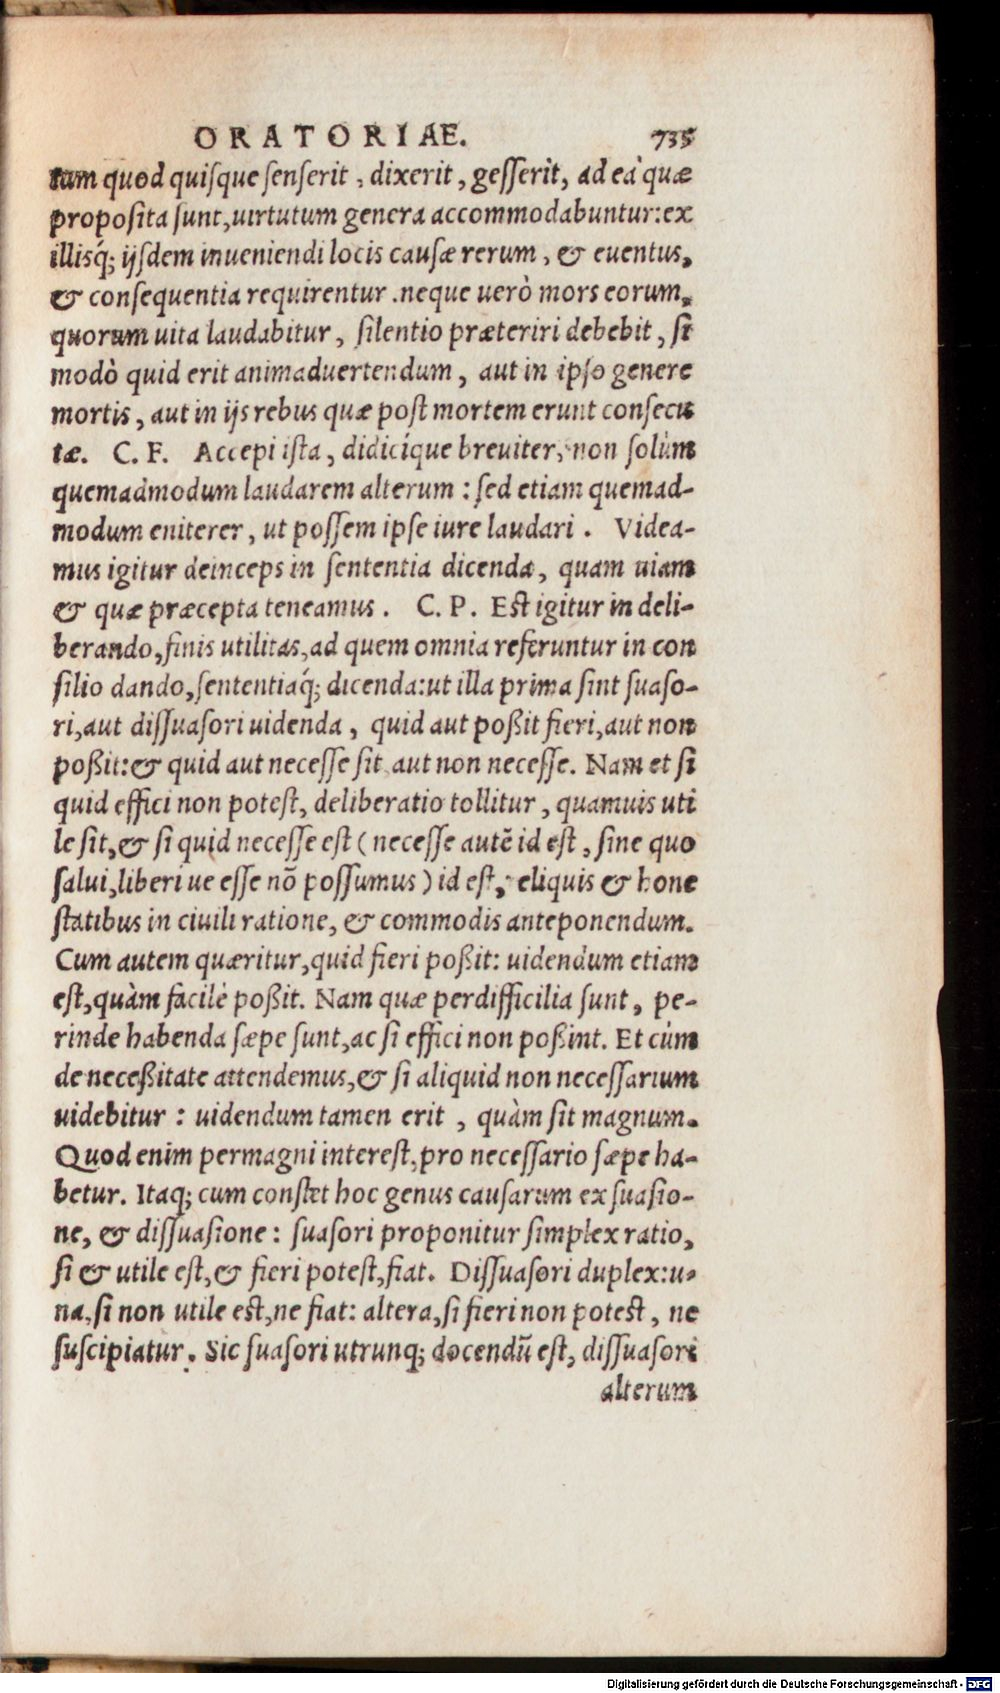 ORATORIAE. 735
tum quod quisque senserit, dixerit, gesserit, ad ea quæ
proposita sunt, uirtutum genera accommodabuntur: ex
illisq́; ijsdem inueniendi locis causæ rerum, & euentus,
& consequentia requirentur. neque uerò mors eorum,
quorum uita laudabitur, silentio præteriri debebit, si
modò quid erit animaduertendum, aut in ipso genere
mortis, aut in ijs rebus quæ post mortem erunt consecu
tæ. C. F. Accepi ista, didicíque breuiter, non solùm
quemadmodum laudarem alterum: sed etiam quemad-
modum eniterer, ut possem ipse iure laudari. Videa-
mus igitur deinceps in sententia dicenda, quam uiam
& quæ præcepta teneamus. C. P. Est igitur in deli-
berando, finis utilitas, ad quem omnia referuntur in con
silio dando, sententiaq́; dicenda: ut illa prima sint suaso-
ri, aut dissuasori uidenda, quid aut poßit fieri, aut non
poßit: & quid aut necesse sit aut non necesse. Nam et si
quid effici non potest, deliberatio tollitur, quamuis uti
le sit, & si quid necesse est (necesse autẽ id est, sine quo
salui, liberi ue esse nõ possumus) id est, reliquis & hone
statibus in ciuili ratione, & commodis anteponendum.
Cum autem quæritur, quid fieri poßit: uidendum etiam
est, quàm facilè poßit. Nam quæ perdifficilia sunt, pe-
rinde habenda sæpe sunt, ac si effici non poßint. Et cùm
de neceßitate attendemus, & si aliquid non necessarium
uidebitur: uidendum tamen erit, quàm sit magnum.
Quod enim permagni interest, pro necessario sæpe ha-
betur. Itaq; cum constet hoc genus causarum ex suasio-
ne, & dissuasione: suasori proponitur simplex ratio,
si & utile est, & fieri potest, fiat. Dissuasori duplex: u-
na, si non utile est, ne fiat: altera, si fieri non potest, ne
suscipiatur. Sic suasori utrunq; docendũ est, dissuasori
alterum
Digitalisierung gefördert durch die Deutsche Forschungsgemeinschaft - DFG